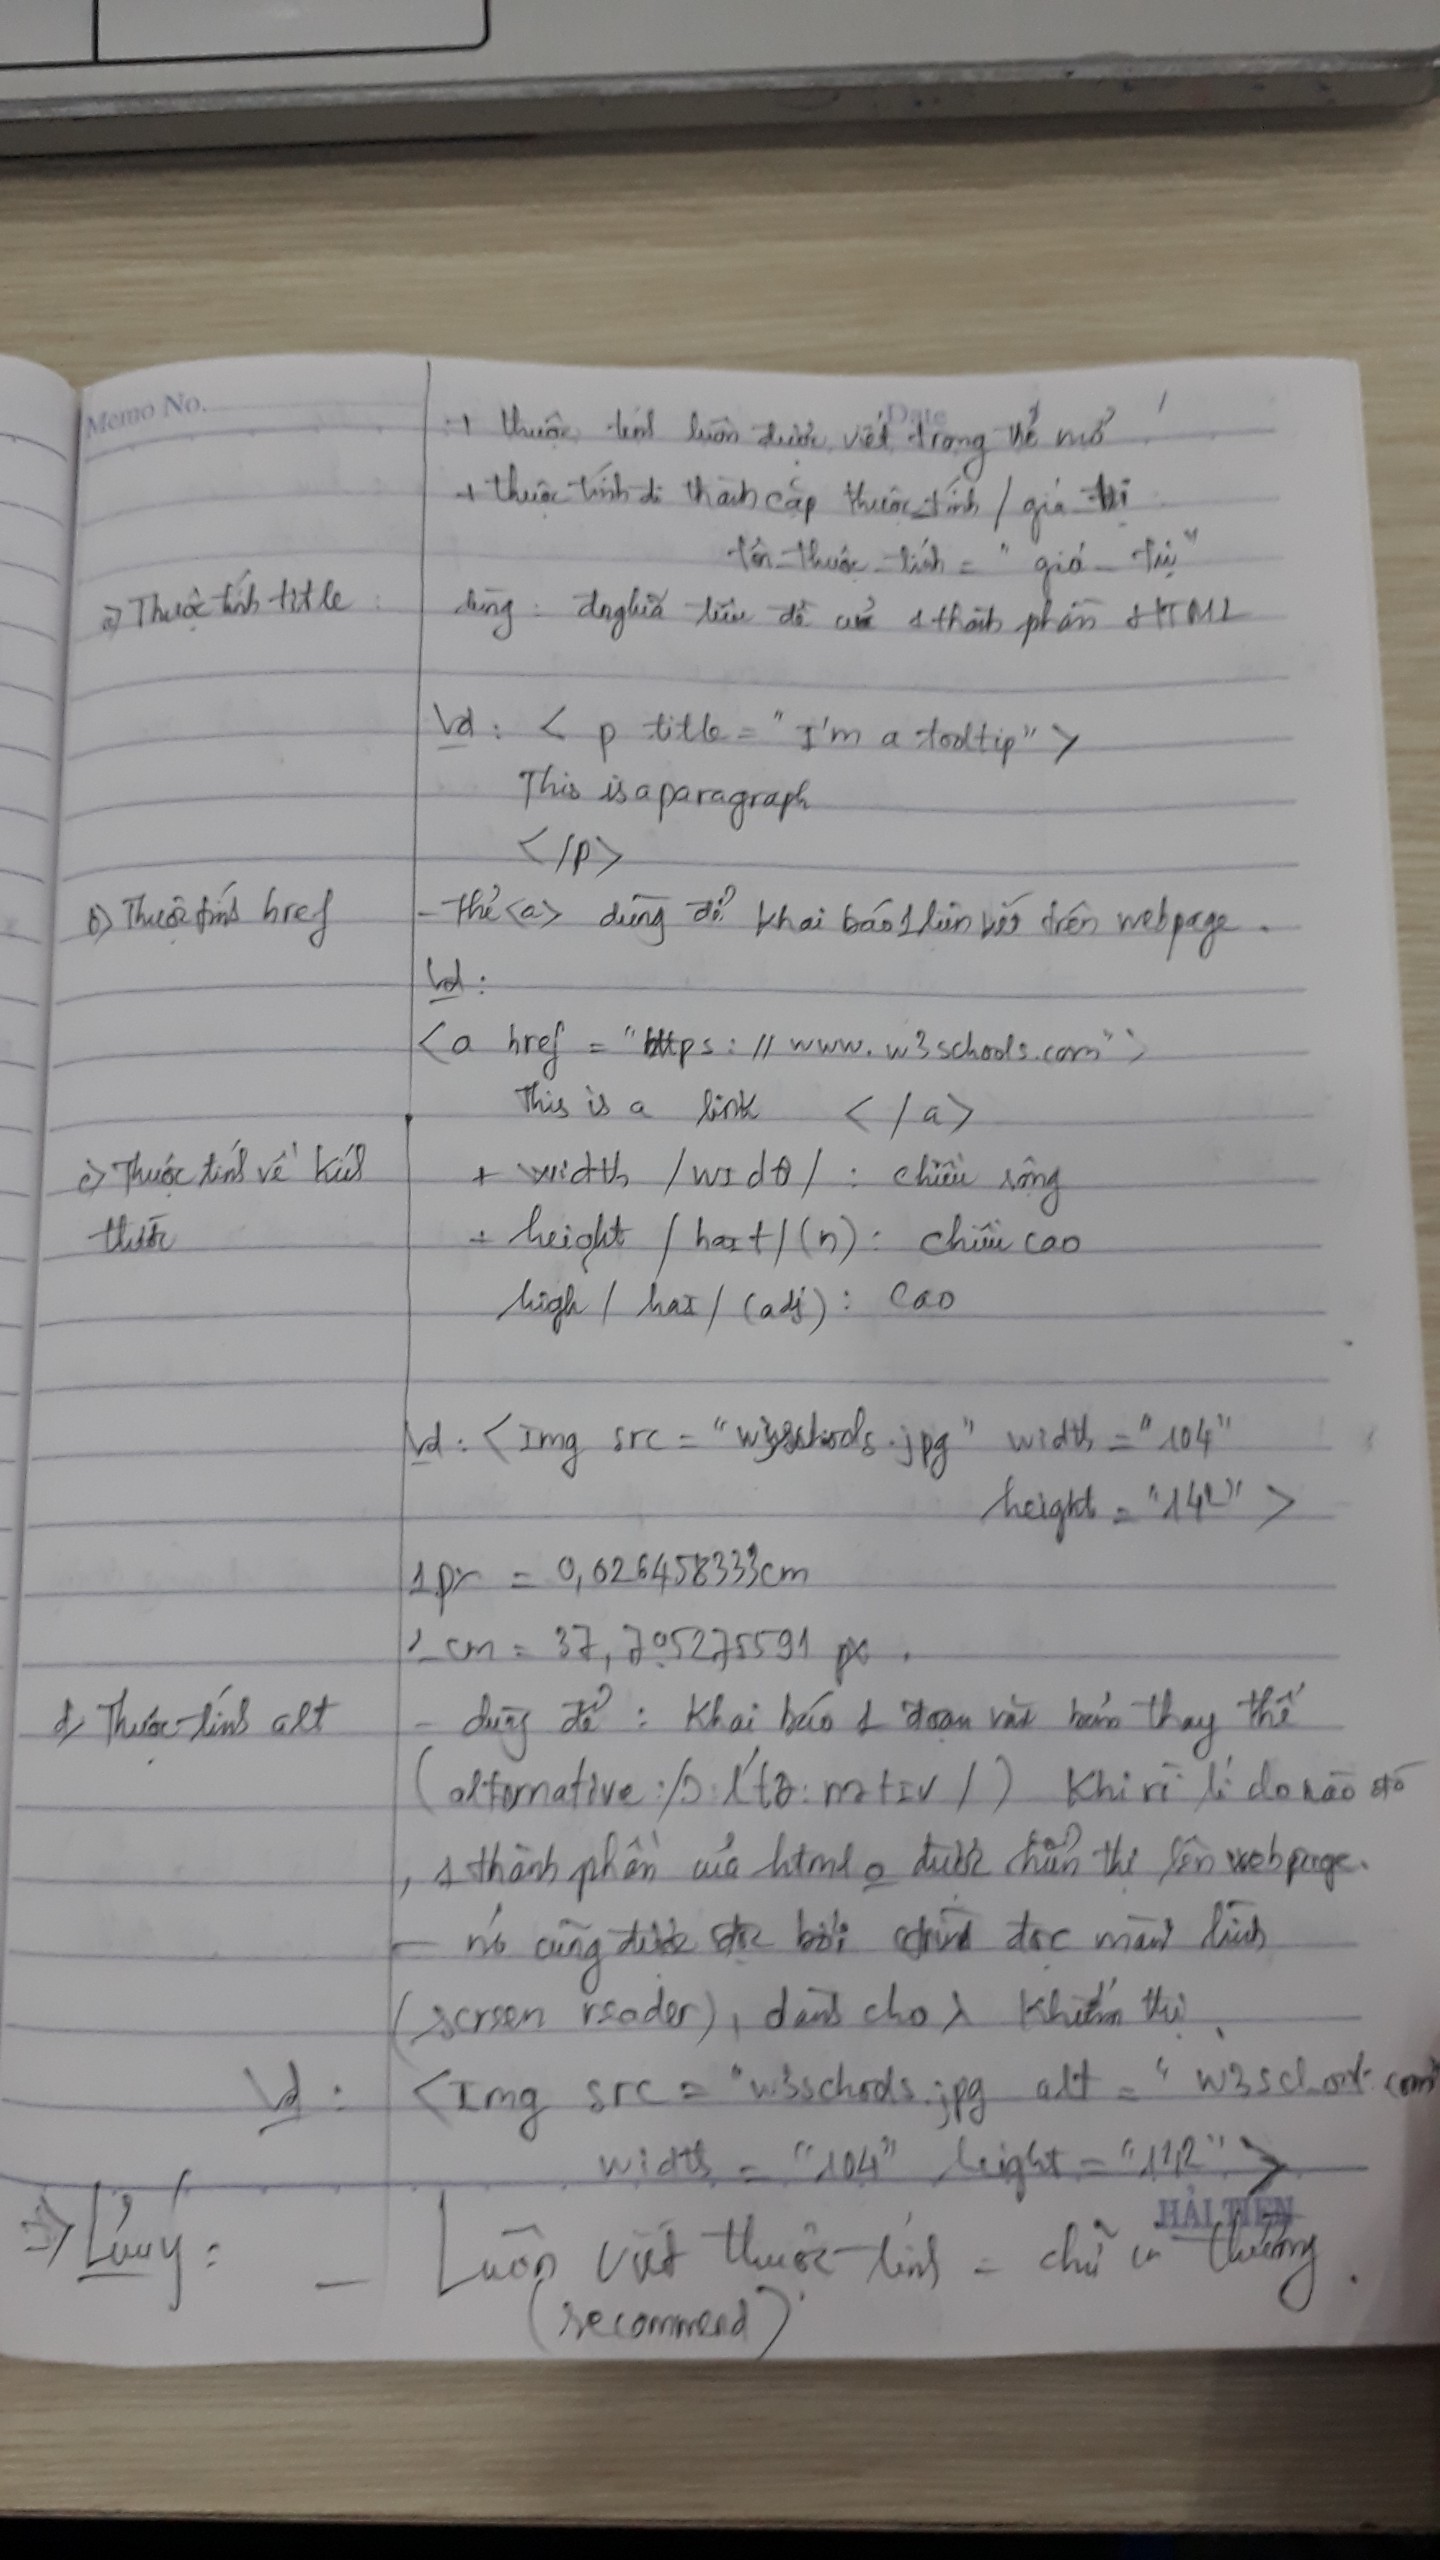 Memo No.
Date
+ thuộc tính luôn được viết trong thẻ mở
+ thuộc tính đi thành cặp thuộc tính / giá trị
tên thuộc tính = "giá trị"
a) Thuộc tính title : dùng : đnghĩa tiêu đề của 1 thành phần HTML
Vd : < p title = "I'm a tooltip" >
This is a paragraph
</p>
b) Thuộc tính href - thẻ <a> dùng để khai báo 1 liên kết trên webpage.
Vd :
<a href = "https://www.w3schools.com">
This is a link </a>
c) Thuộc tính về kích + width /wɪdθ/ : chiều rộng
thước + height /haɪt/ (n) : chiều cao
high /haɪ/ (adj) : cao
Vd : <Img src = "w3schools.jpg" width = "104"
height = "142" >
1 px = 0,026458333cm
1 cm = 37,795275591 px .
d) Thuộc tính alt - dùng để : Khai báo 1 đoạn văn bản thay thế
(alternative : /ɔ:l'tə:nətɪv/) Khi vì lí do nào đó
, 1 thành phần của html o được hiển thị lên webpage.
- nó cũng được đọc bởi đọc màn hình
(screen reader), dành cho λ khiếm thị.
Vd : <Img src = "w3schools.jpg alt = "w3school.com"
width = "104" height = "142" >
HẢI TIẾN
=> Lưu ý : - Luôn viết thuộc tính = chữ in thường.
(recommend)